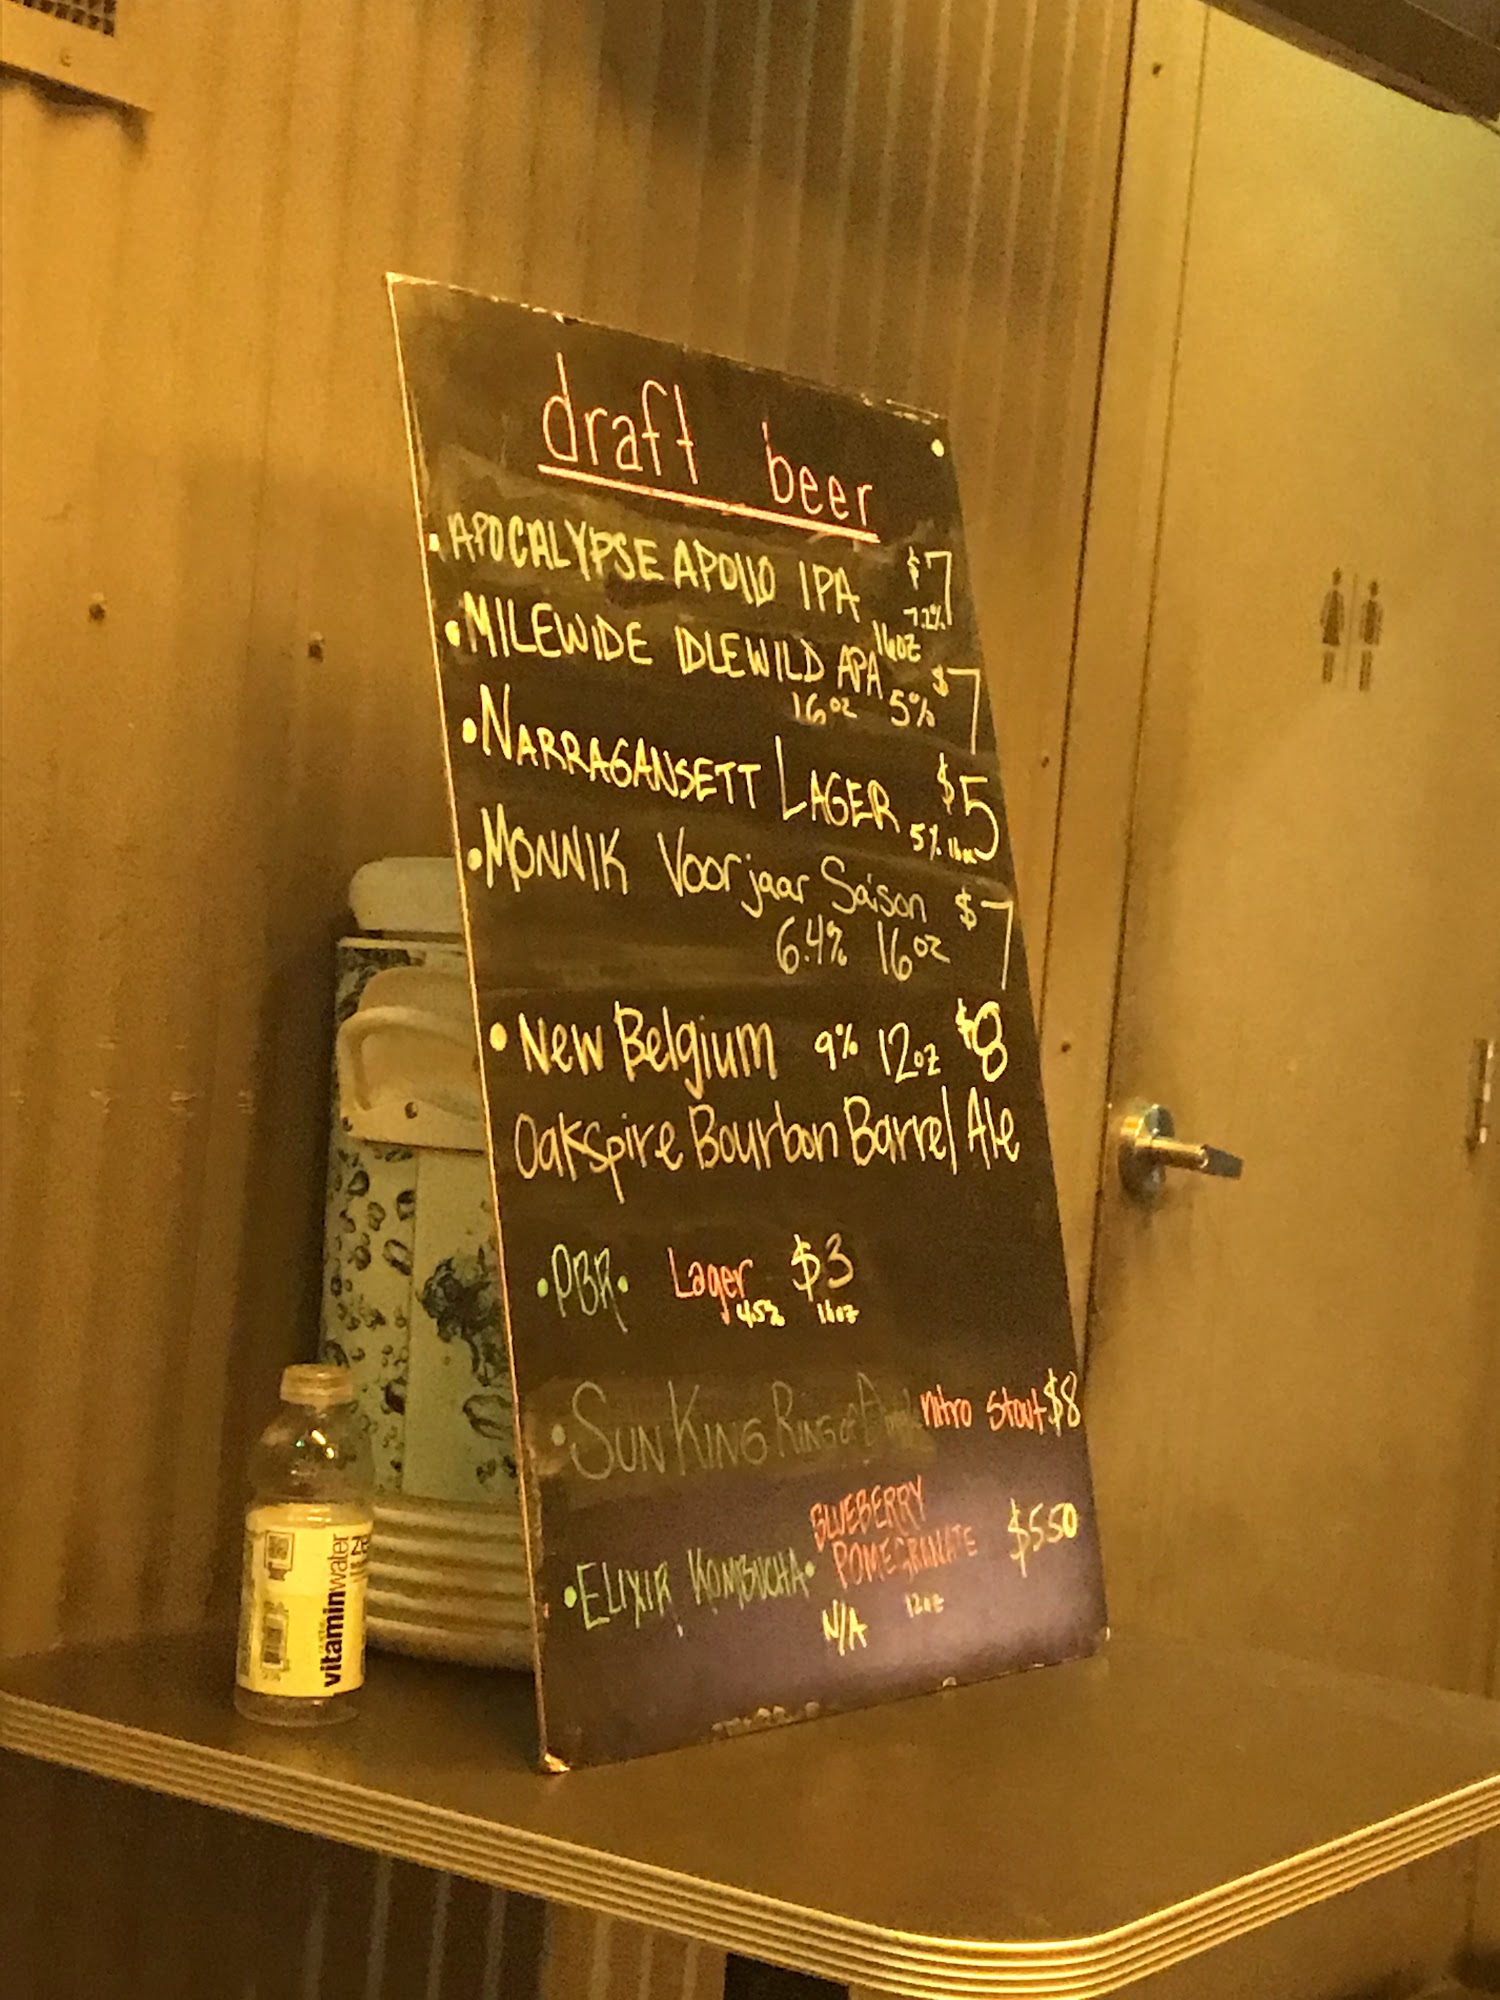 draft beer
• APOCALYPSE APOLLO IPA $7
7.2%
16oz
• MILEWIDE IDLEWILD APA $7
16oz 5%
• NARRAGANSETT LAGER $5
5% 16oz
• MONNIK Voorjaar Saison $7
6.4% 16oz
• New Belgium 9% 12oz $8
Oakspire Bourbon Barrel Ale
• PBR • Lager $3
4.5% 16oz
• SUN KING RING OF nitro stout $8
BLUEBERRY
• ELIXIR KOMBUCHA • POMEGRANATE $550
N/A 12oz
vitaminwater